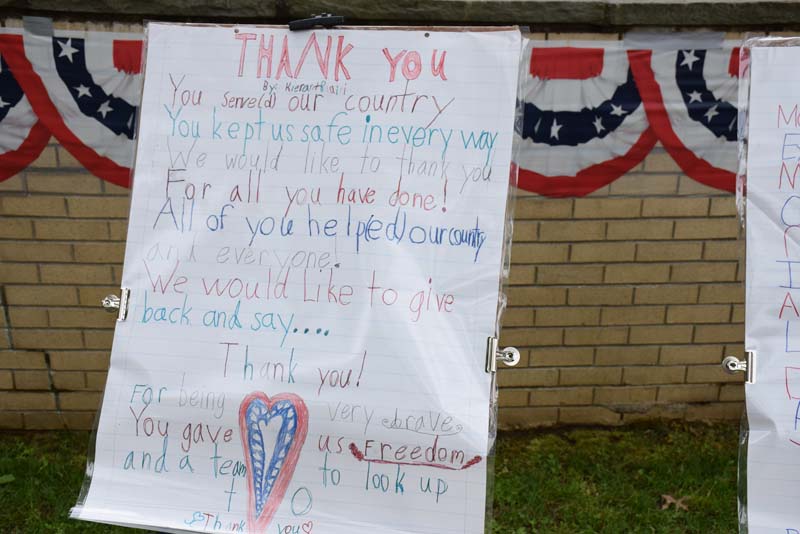 THANK YOU
By:
You serve(d) our country
You kept us safe in every way
We would like to thank you
For all you have done!
All of you help(ed) our country
and everyone.
We would Like to give
back and say....
Thank you!
For being very brave
You gave us Freedom
and a team to look up
to
Thank you
M
E
M
O
R
I
A
L
D
A